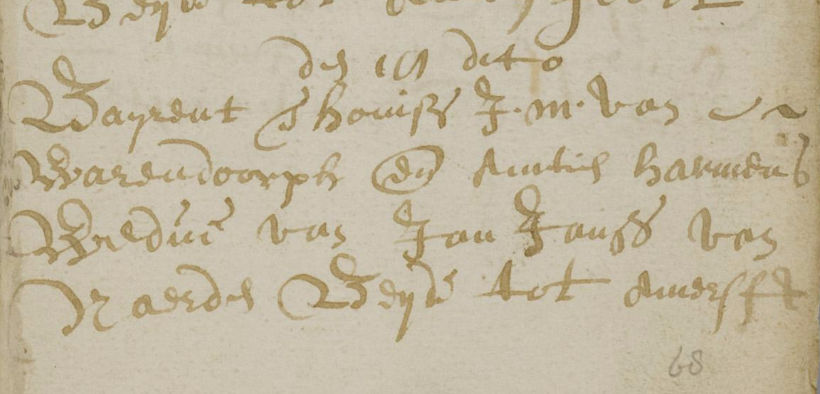 Beyde tot
den 19 dito
Barent Thoniss J.m. van
Warendorph en Anties harmens
Weduwe van Jan Janss van
Naerden Beyde tot Amersft
68